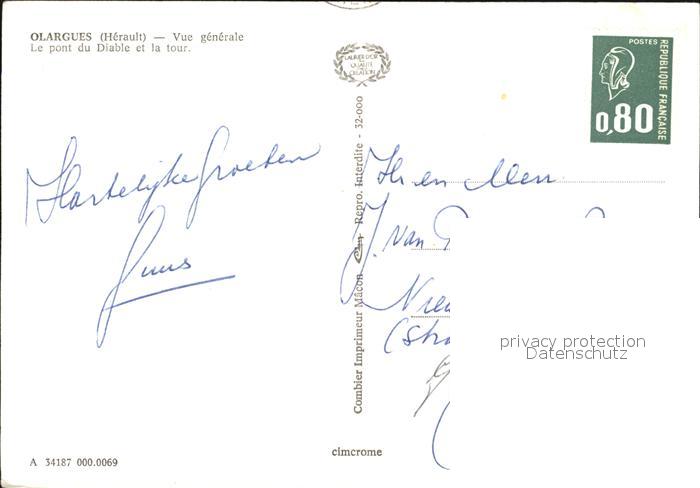 OLARGUES (Hérault) — Vue générale
Le pont du Diable et la tour.
LAURIER D'OR
DE LA
QUALITÉ
CRÉATION
POSTES
RÉPUBLIQUE FRANÇAISE
0,80
Hartelijke Groeten
Combier Imprimeur Mâcon Repro. Interdite - 32-000
J. van
privacy protection
Datenschutz
cimcrome
A 34187 000.0069